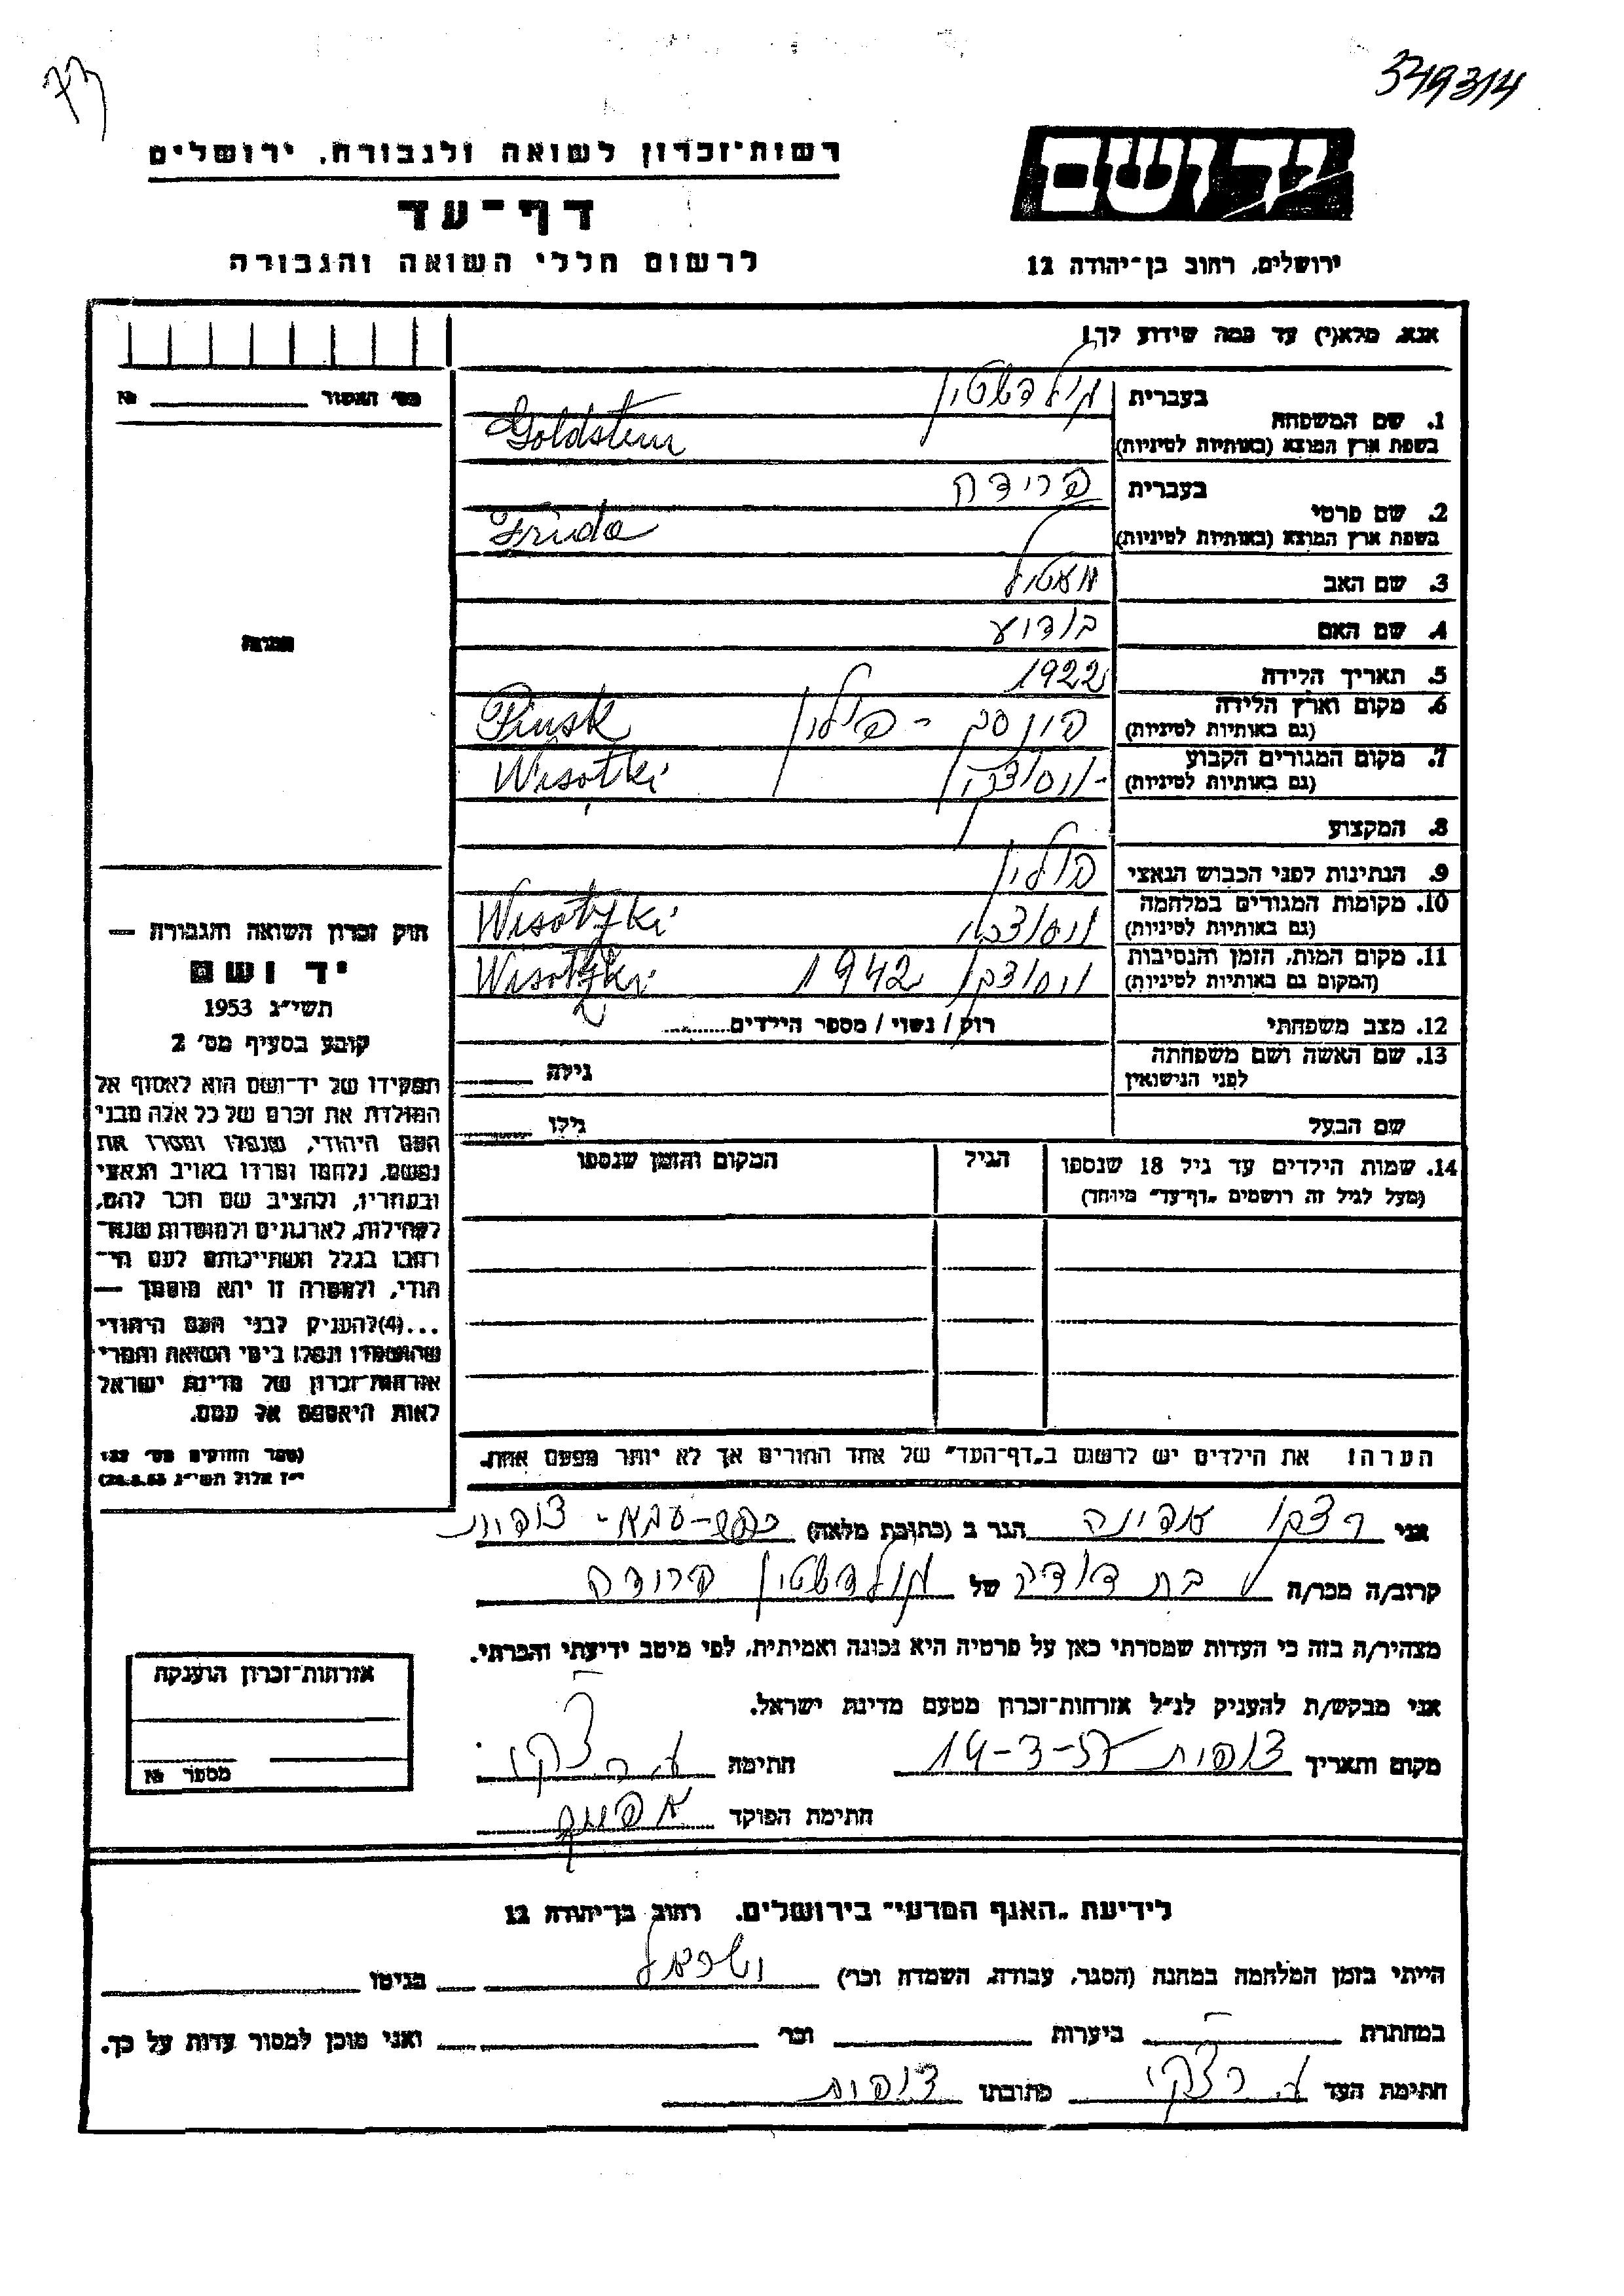 349314
רשות־זכרון לשואה ולגבורה, ירושלים
יד ושם
דף־עד
לרשום חללי השואה והגבורה
ירושלים, רחוב בן־יהודה 12
אנא, מלא(י) עד כמה שידוע לך!
מס' האשור № ______
1. שם המשפחה
בעברית גולדשטיין
בשפת ארץ המוצא (באותיות לטיניות) Goldstein
2. שם פרטי
בעברית פרידה
בשפת ארץ המוצא (באותיות לטיניות) Frida
3. שם האב
4. שם האם
5. תאריך הלידה 1922
6. מקום וארץ הלידה (גם באותיות לטיניות) פינסק - פולין Pinsk
7. מקום המגורים הקבוע (גם באותיות לטיניות) Wisotki
8. המקצוע
9. הנתינות לפני הכבוש הנאצי פולין
10. מקומות המגורים במלחמה (גם באותיות לטיניות) Wisotzki
11. מקום המות, הזמן והנסיבות (המקום גם באותיות לטיניות) 1942 Wisotzki
12. מצב משפחתי רווק / נשוי / מספר הילדים.........
13. שם האשה ושם משפחתה לפני הנישואין גילה
שם הבעל גילו
14. שמות הילדים עד גיל 18 שנספו (מעל לגיל זה רושמים "דף־עד" מיוחד) הגיל המקום והזמן שנספו
תמונה
חוק זכרון השואה והגבורה —
יד ושם
תשי"ג 1953
קובע בסעיף מס' 2
תפקידו של יד־ושם הוא לאסוף אל
המולדת את זכרם של כל אלה מבני
העם היהודי, שנפלו ומסרו את
נפשם, נלחמו ומרדו באויב הנאצי
ובעוזריו, ולהציב שם וזכר להם,
לקהילות, לארגונים ולמוסדות שנח־
רבו בגלל השתייכותם לעם הי־
הודי, ולמטרה זו יהא מוסמך —
...(4)להעניק לבני העם היהודי
שהושמדו ונפלו בימי השואה והמרי
אזרחות־זכרון של מדינת ישראל
לאות היאספם אל עמם.
(ספר החוקים מס' 132
י"ז אלול תשי"ג 28.8.53)
הערה! את הילדים יש לרשום ב"דף־העד" של אחד ההורים אך לא יותר מפעם אחת.
אני רצקי עדינה הגר ב (כתובת מלאה) כפר-סבא- צופית
קרוב/ה מכר/ה בת דודה של גולדשטיין פרידה
מצהיר/ה בזה כי העדות שמסרתי כאן על פרטיה היא נכונה ואמיתית, לפי מיטב ידיעתי והכרתי.
אני מבקש/ת להעניק לנ"ל אזרחות־זכרון מטעם מדינת ישראל.
מקום ותאריך צופית 14-3-57 חתימה ע. רצקי
חתימת הפוקד
אזרחות־זכרון הוענקה
מספר №
לידיעת "האגף המדעי" בירושלים, רחוב בן־יהודה 12
הייתי בזמן המלחמה במחנה (הסגר, עבודה, השמדה וכו') בגיטו
במחתרת ביערות וכו' ואני מוכן למסור עדות על כך.
חתימת העד ע. רצקי כתובתו צופית